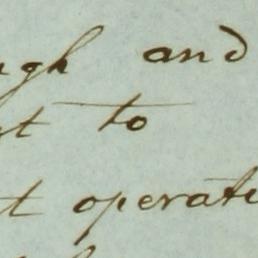 ugh and
t to
t operati